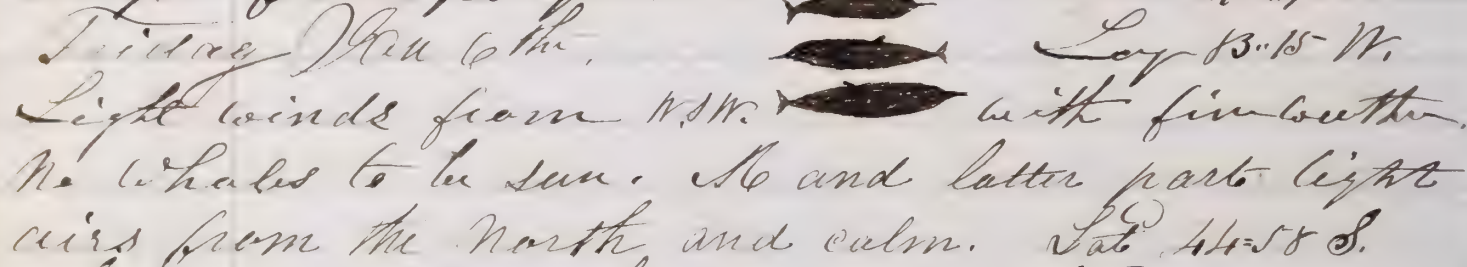 Friday Jan 6 th. Log 83=15 W.
Light winds from W.S.W. with fine weather.
No whales to be seen. M and latter part light
airs from the North and calm. Lat 44=58 S.